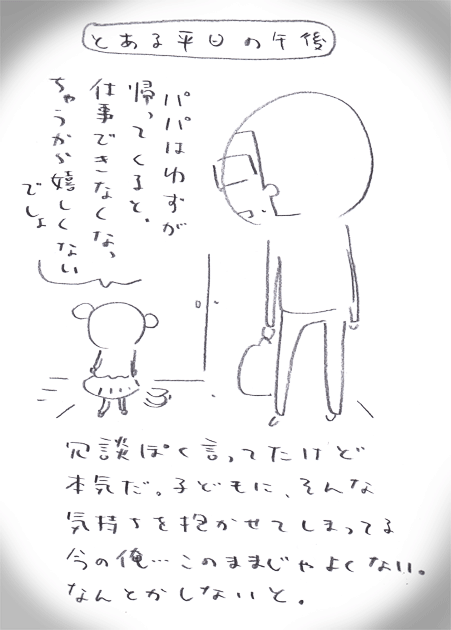 とある平日の午後
パパはわずが
帰ってくると、
仕事できなくなっ
ちゃうから嬉しくない
でしょ
冗談ぽく言ってたけど
本気だ。子どもに、そんな
気持ちを抱かせてしまってる
今の俺…このままじゃよくない。
なんとかしないと。